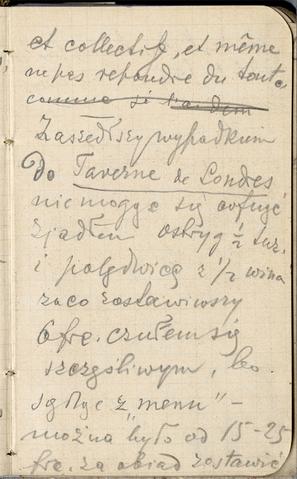 et collectif, et même
ne pas répondre du tout.
comme si
Zaszedłszy wypadkiem
do Taverne de Londres
nie mogąc się
zjadłem ostryg ½ tuz.
i polędwicę z ½ wina
za co zostawiwszy
6 frc. czułem się
szczęśliwym, bo
sądząc z "menu" –
można było od 15–25
frc. za obiad zostawić